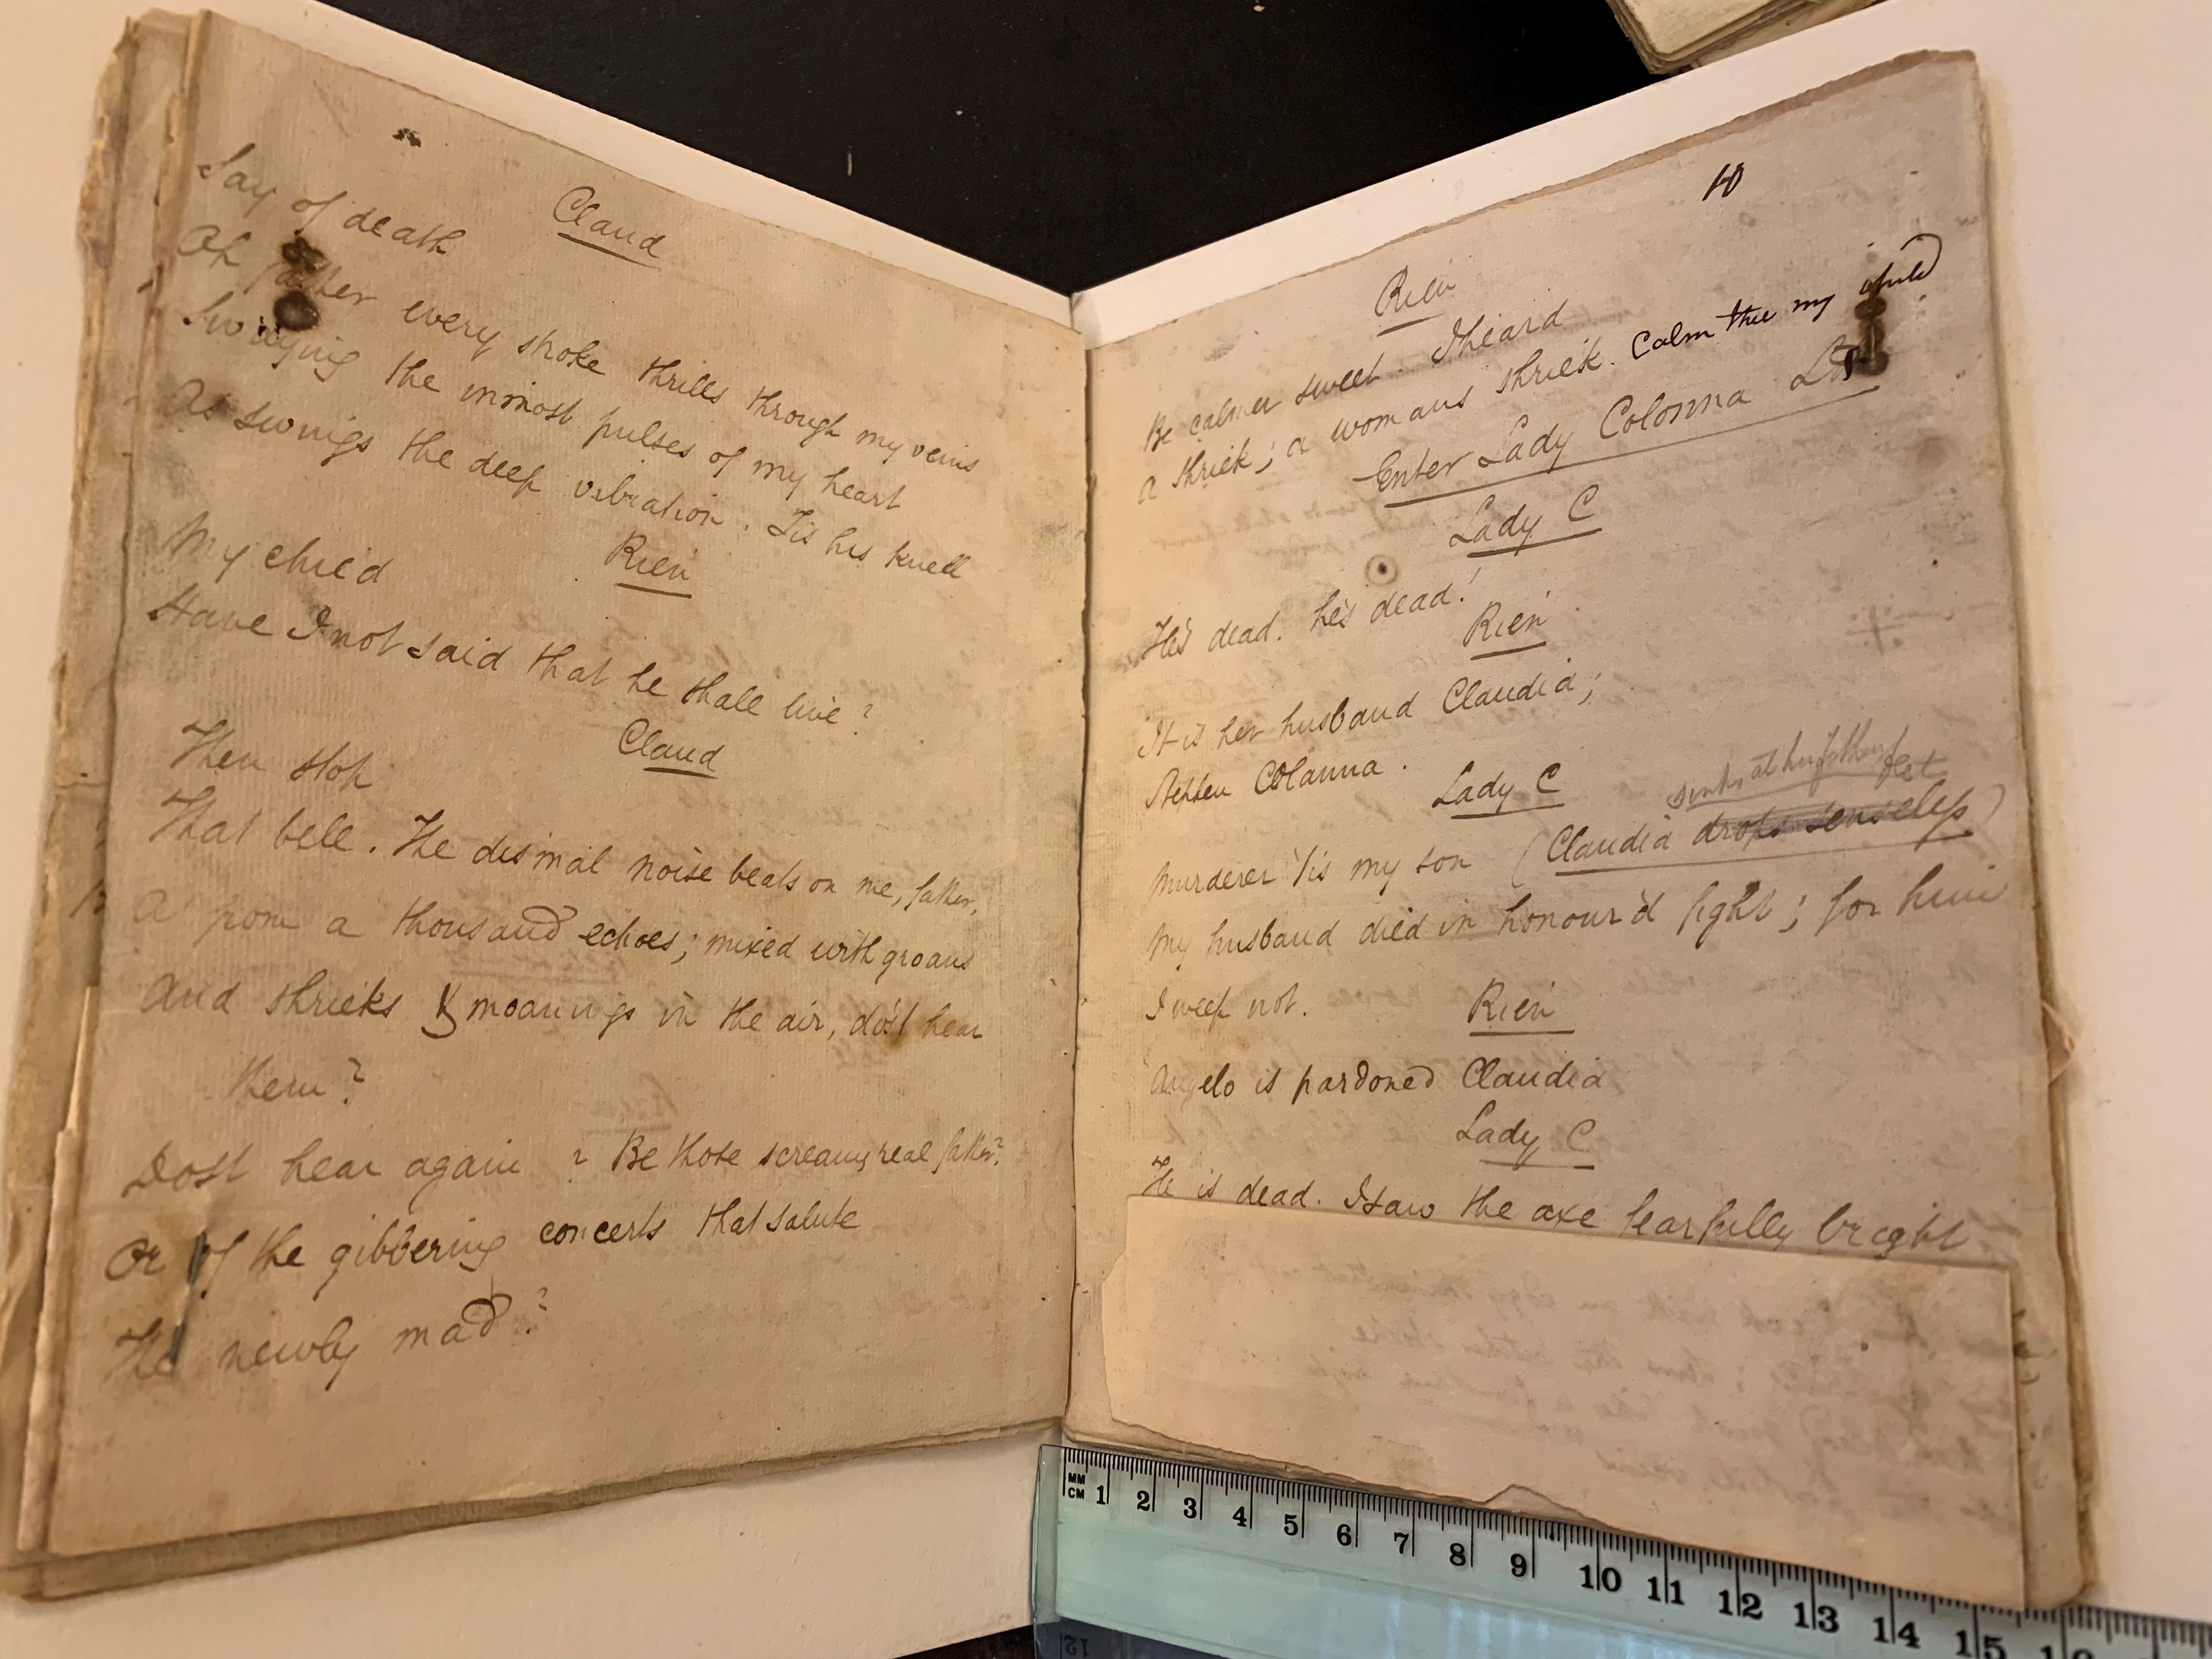 Claud
Say of death
Oh father every stroke thrills through my veins
Swinging the inmost pulses of my heart
As swings the deep vibration. Tis his knell
Rien
My child
Have I not said that he shall live?
Claud
Then stop
That bell. The dismal noise beats on me, father,
A from a thousand echoes; mixed with groans
And shrieks & moanings in the air, dost hear
them?
Dost hear again ? Be those screams real father?
Or of the gibbering concerts that salute
The newly mad?
10
Rien
Be calmer sweet. I heard
a shriek; a womans shriek. Calm thee my child
Enter Lady Colonna
Lady C
He's dead. he's dead!
Rien
It is her husband Claudia;
Stephen Colanna.
Lady C
sinks at her fathers feet
Murderer 'tis my son (Claudia drops senseless)
My husband died in honour'd fight; for him
I weep not.
Rien
Angelo is pardoned Claudia
Lady C
He is dead. I saw the axe fearfully bright
MM
CM 1 2 3 4 5 6 7 8 9 10 11 12 13 14 15
12